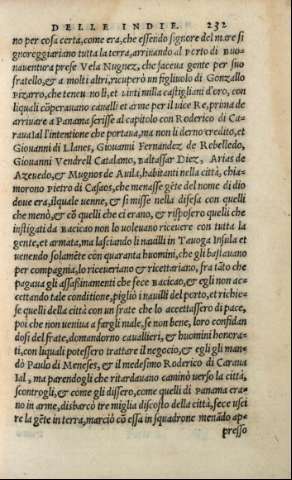 DELLE INDIE. 232
no per cosa certa, come era, che essendo signore del mare si
signoreggiariano tutta la terra, arrinando al Porto di Buo-
nauentura prese Vela Nugnez, che faceua gente per suo
fratello, & a molti altri, ricuperò un figliuolo di Gonzallo
Pizarro, che teneu no lì, et uinti milla castigliani d'oro, con
liquali cōperauano caualli et arme per il uice Re, prima de
arriuare a Panama scrisse al capitolo con Roderico di Car-
uaial l'intentione che portaua, ma non li derno credito, et
Giouanni di Llanes, Giouanni Fernandez de Rebelledo,
Giouanni Vendrell Catalano, Baltassar Diez, Arias de
Azeuedo, & Mugnos de Auila, habitanti nella città, chia-
morono Pietro di Casaos, che menasse gēte del nome di dio
doue era, ilquale uenne, & si misse nella difesa con quelli
che menò, & cō quelli che ci erano, & risposero quelli che
instigati da Bacicao non lo uoleuano riceuere con tutta la
gente, et armata, ma lasciando li nauilli in Tauoga Insula et
uenendo solamēte con quaranta huomini, che gli bastauano
per compagnia, lo riceueriano & ricettariano, fra tāto che
pagaua gli assassinamenti che fece Bacicao, & egli non ac-
cettando tale conditione, pigliò i nauilli del porto, et richie-
se quelli della città con un frate che lo accettassero di pace,
poi che non ueniua a fargli male, se non bene, loro confidan
dosi del frate, domandorno cauallieri, & huomini honora-
ti, con liquali potessero trattare il negocio, & egli gli man-
dò Paulo di Meneses, & il medesimo Roderico di Caraua
ial, ma parendogli che ritardauano caminò uerso la città,
scontrogli, & come gli dissero, come quelli di Panama era-
no in arme, disbarcò tre miglia discosto della città, fece usci
re la gēte in terra, marciò cō essa in squadrone menādo ap-
presso